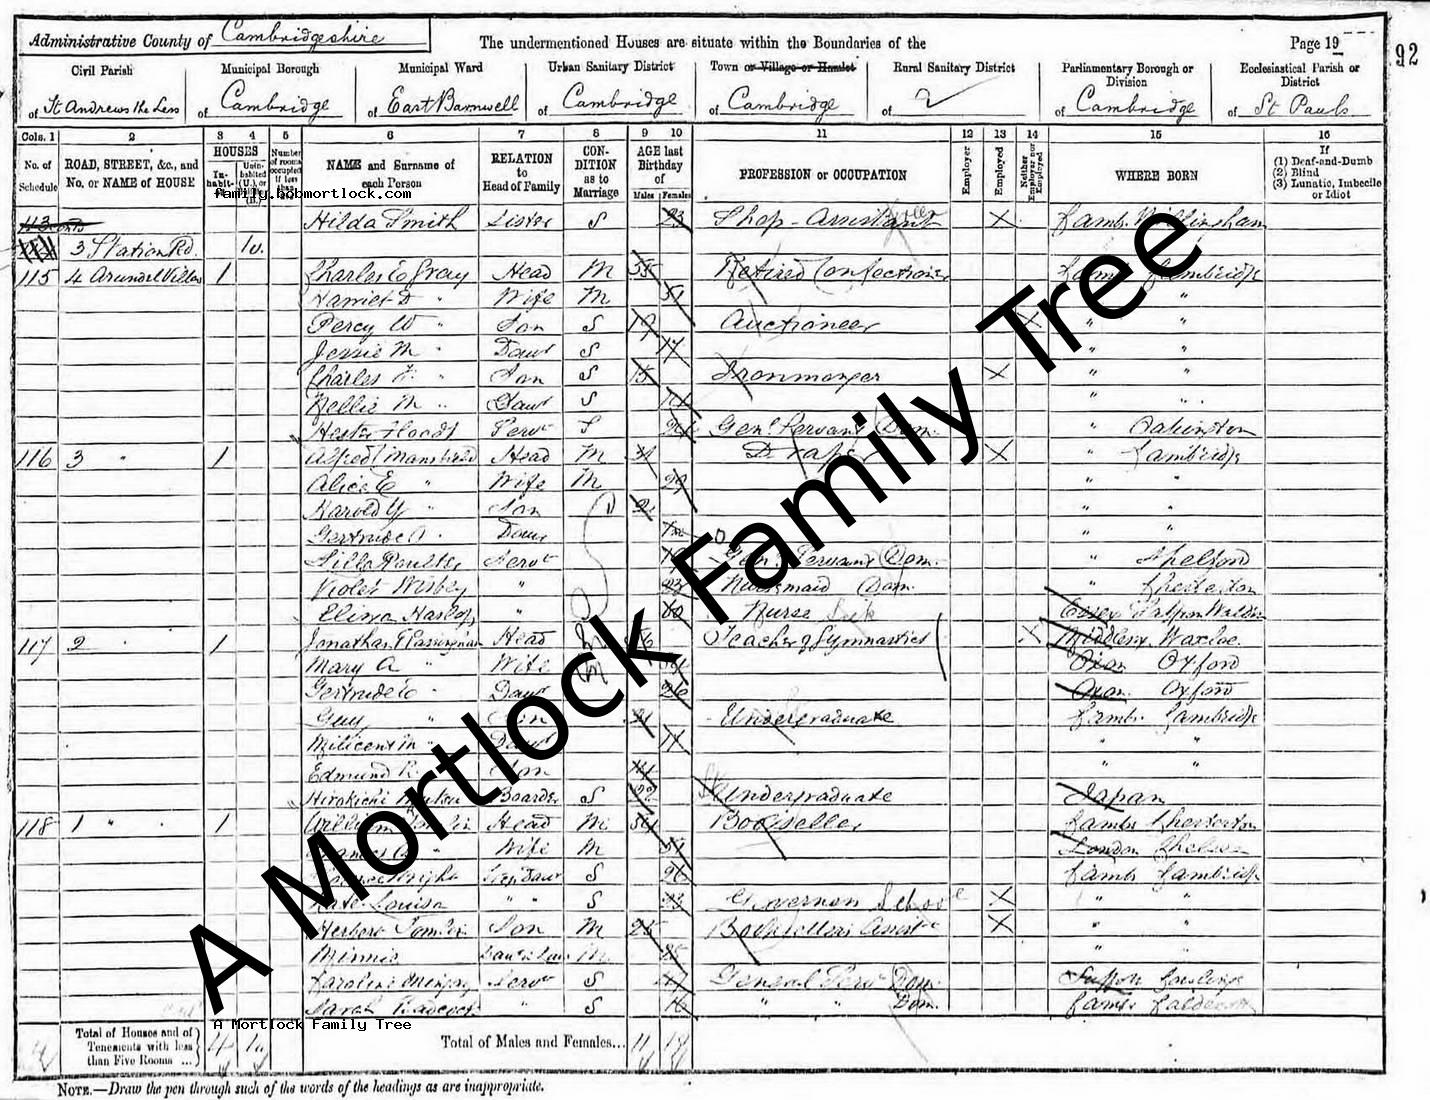 Administrative County of Cambridgeshire The undermentioned Houses are situate within the Boundaries of the Page 19 92
Civil Parish Municipal Borough Municipal Ward Urban Sanitary District Town or Village or Hamlet Rural Sanitary District Parliamentary Borough or Division Ecclesiastical Parish or District
of St Andrews the Less of Cambridge of East Barnwell of Cambridge of Cambridge of of Cambridge of St Pauls
Cols. 1 2 3 4 5 6 7 8 9 10 11 12 13 14 15 16
No. of Schedule ROAD, STREET, &c., and No. or NAME of HOUSE HOUSES Inhabited Uninhabited (U.), or Number of rooms occupied if less than NAME and Surname of each Person RELATION to Head of Family CONDITION as to Marriage AGE last Birthday of Males Females PROFESSION or OCCUPATION Employer Employed Neither Employer nor Employed WHERE BORN If (1) Deaf-and-Dumb (2) Blind (3) Lunatic, Imbecile or Idiot
family.bobmortlock.com
113 Hilda Smith Sister S 23 Shop-Assistant X Cambs. Willingham
114 3 Station Rd. 1u.
115 4 Arundel Villas 1 Charles E Gray Head M 55 Retired Confectioner Cambs Cambridge
Harriet D " Wife M 51 " "
Percy W " Son S 19 Auctioneer X " "
Jessie M " Daur S 17 " "
Charles F. " Son S 15 Ironmonger X " "
Nellie M " Daur S " "
Hester Servt S Genl Servant Dom. " Oakington
116 3 " 1 Alfred Mansfield Head M Draper X " Cambridge
Alice E " Wife M 29 " "
Harold G " Son 2 " "
Gertrude A " Daur " "
Servt 19 Gen. Servant Dom. " Shelford
Violet " 23 Nursemaid Dom. " Chesterton
" 60 Nurse Essex Saffron Walden
117 2 " 1 Jonathan T Head Teacher of Gymnastics X Middlesex
Mary A " Wife Oxon Oxford
Gertrude E " Daur 26 Oxon Oxford
Guy " Son 21 Undergraduate Cambs. Cambridge
Milicent M " Daur " "
Edmund R. Son 14 " "
Hirokichi Boarder S 22 Undergraduate Japan
118 1 " 1 William Tomlin Head M 54 Bookseller Cambs Chesterton
Frances " Wife M 51 London Chelsea
Wright Step Daur S 26 Cambs Cambridge
Kate Louisa " " S 23 Governess School X " "
Herbert Tomlin Son M 25 Booksellers Assist X " "
Minnie M 25 " "
Caroline Servt S General Serv Dom. Suffolk
Sarah Badcock " S 16 " " Dom. Cambs Caldecott
A Mortlock Family Tree
A Mortlock Family Tree
Total of Houses and of Tenements with less than Five Rooms ... 4 1u Total of Males and Females... 11 18
NOTE.—Draw the pen through such of the words of the headings as are inappropriate.